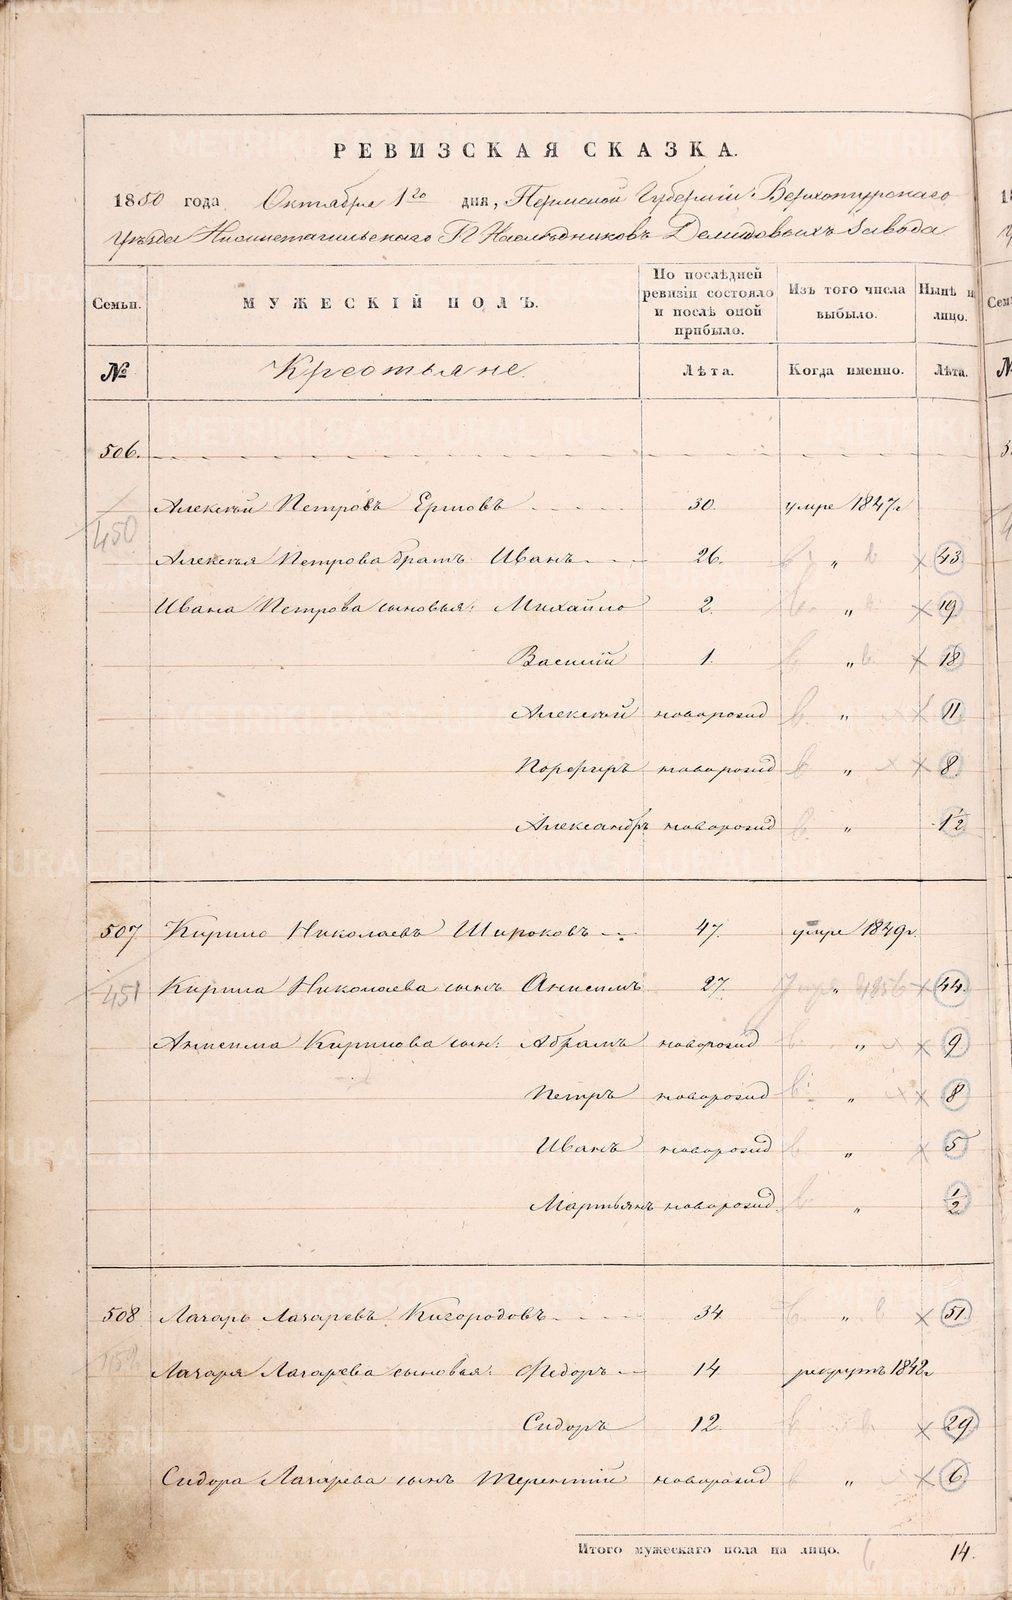 РЕВИЗСКАЯ СКАЗКА.
1850 года Октября 1го дня, Пермской Губернiи Верхотурскаго
Уѣзда Нижнетагильскаго П. Наслѣдниковъ Демидовыхъ Завода
Семьи. МУЖЕСКIЙ ПОЛЪ. По послѣдней ревизiи состояло и послѣ оной прибыло. Изъ того числа выбыло. Нынѣ на лицо.
№ Крестьяне. Лѣта. Когда именно. Лѣта.
506.
Алексѣй Петровъ Ершовъ 30. умре 1847г
450
Алексѣя Петрова братъ Иванъ 26. " 43
Ивана Петрова сыновья: Михайло 2. " 19
Василiй 1. " 18
Алексѣй новорожд " 11
Порфиръ новорожд " 8
Александръ новорожд " 1½
507 Кирило Николаевъ Широковъ 47. умре 1849г.
451 Кирила Николаева сынъ Анисимъ 27. " 1856 44
Анисима Кирилова сын: Абрамъ новорожд " 9
Петръ новорожд " 8
Иванъ новорожд " 5
Мартьянъ новорожд. " ½
508 Лазарь Лазаревъ Кигородовъ 34. " 51
Лазаря Лазарева сыновья: Ѳедоръ 14 рекрутъ 1842г
Сидоръ 12. 29
Сидора Лазарева сынъ Терентiй новорожд " 6
Итого мужескаго пола на лицо. 14.
METRIKI.GASO-URAL.RU